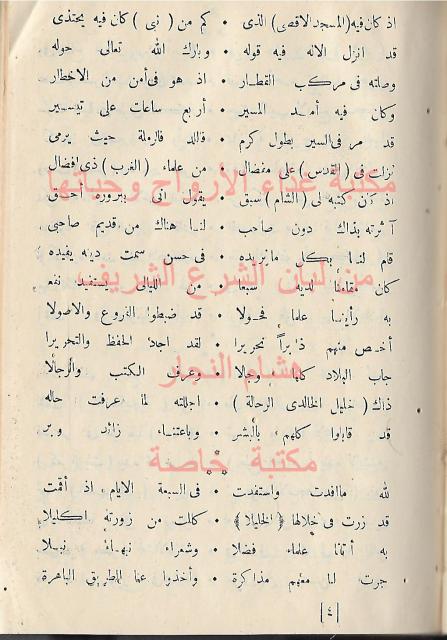 اذ كان فيه (المسجد الاقصى) الذى • كم من (نبى) كان فيه يحتذى
قد انزل الاله فيه قوله • وبارك الله تعالى حوله
وصلته فى مركب القطار • اذ هو فى أمن من الاخطار
وكان فيه أمد المسير • أربع ساعات على تيسير
قد مر فى السير بطول كرم • فاللد فالرملة حيث يرمى
نزلت فى (القدس) على مفضال • من علماء (الغرب) ذى افضال
مكتبة غذاء الأرواح وحياتها
كتبه لى (الشام) سبق • يقول انى ببروره أحق
آثرته بذاك دون صاحب • لنا هناك من قديم صاحبى
قام لنا بكل ما نريده • فى حسن سمت دينه يفيده
من لبان الشرع الشريف
كان مقامنا لديه سبعا • من الليالى يستفيد نفعا
به رأينا علما فحولا • قد ضبطوا الفروع والاصولا
أخص منهم نحريرا • لقد اجاد الحفظ والتحريرا
هشام النجار
جاب البلاد كلها وجالا • وعرف الكتب والرجالا
ذاك (خليل الخالدى الرحالة) • اجللته لما عرفت حاله
قد قابلوا كلهم بالبشر • وباعتناء زائد وبر
مكتبة خاصة
* * *
لله ما افدت واستفدت • فى السبعة الايام اذ أقمت
قد زرت فى خلالها (الخليلا) • كالت من زورته اكليلا
به أتانا علماء فضلا • وشعراء نبهاء نبلا
جرت لنا معهم مذاكرة • وأخذوا عنا الطريق الباهرة
[٤]